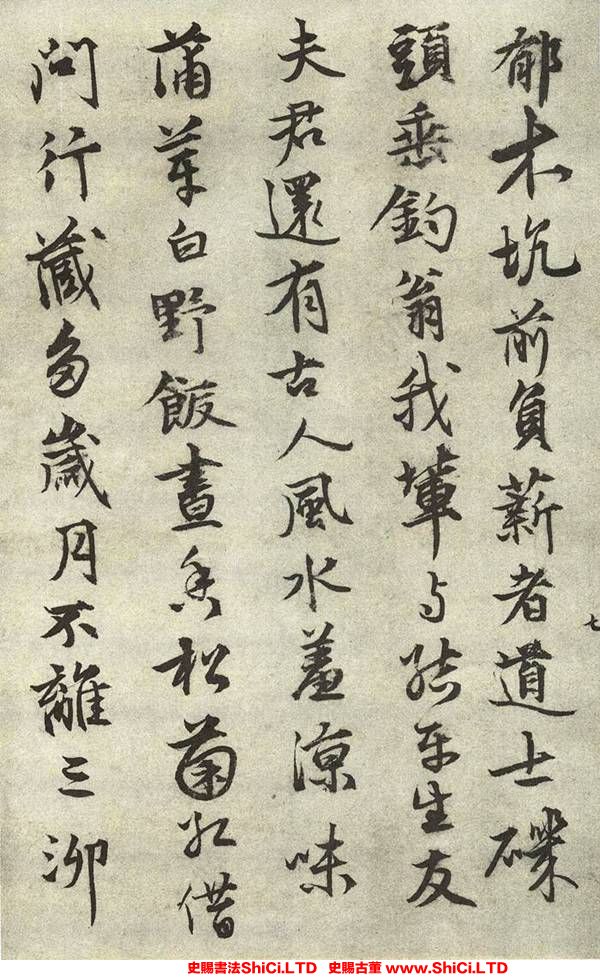 郁木坑前負薪者道士磯
頭垂釣翁我輩与結平生友
夫君還有古人風水羞涼味
蒲芽白野飯晝香松菌紅借
問行藏多歲月不離三泖
七
史賜書法ShiCi.LTD 史賜古董 www.ShiCi.LTD